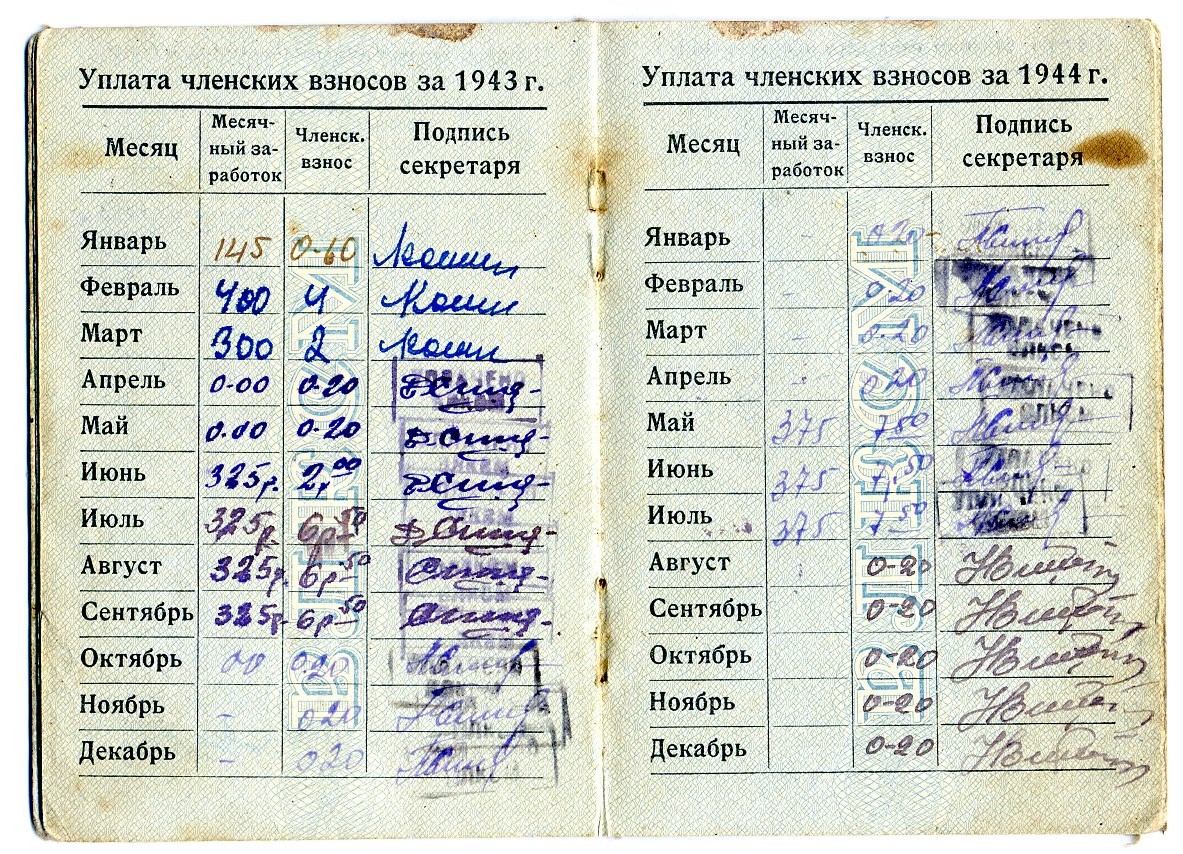 Уплата членских взносов за 1943 г.
Месяц
Месяч-
ный за-
работок
Членск.
взнос
Подпись
секретаря
Январь 145 0-60
Февраль 400 4
Март 300 2
Апрель 0-00 0-20
Май 0.00 0-20
Июнь 325р. 2р00
Июль 325р. 6р50
Август 325р. 6р50
Сентябрь 325р. 6р50
Октябрь 00 0.20
Ноябрь - 020
Декабрь - 020
Уплата членских взносов за 1944 г.
Месяц
Месяч-
ный за-
работок
Членск.
взнос
Подпись
секретаря
Январь - 0.20-
Февраль - 0-20
Март - 0-20
Апрель - 020
Май 375 7 50
Июнь 375 7р.50
Июль 375 7-50
Август 0-20
Сентябрь 0-20
Октябрь 0-20
Ноябрь 0-20
Декабрь 0-20